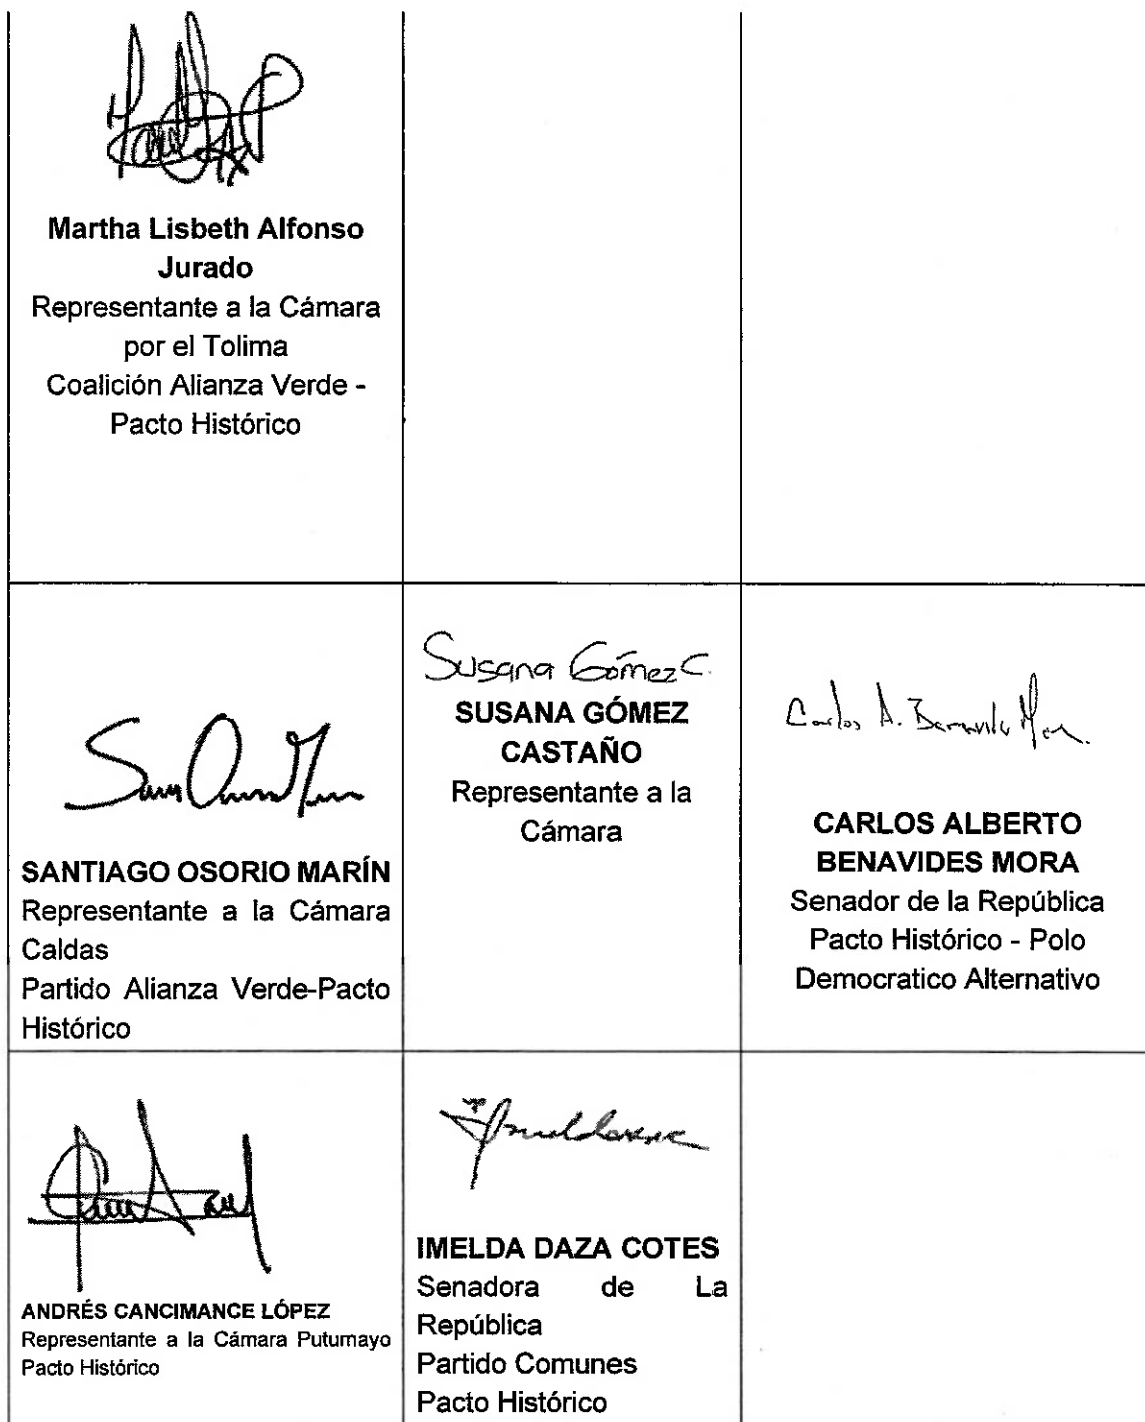 Martha Lisbeth Alfonso
Jurado
Representante a la Cámara
por el Tolima
Coalición Alianza Verde -
Pacto Histórico
SANTIAGO OSORIO MARÍN
Representante a la Cámara
Caldas
Partido Alianza Verde-Pacto
Histórico
Susana Gómez C.
SUSANA GÓMEZ
CASTAÑO
Representante a la
Cámara
Carlos A.
CARLOS ALBERTO
BENAVIDES MORA
Senador de la República
Pacto Histórico - Polo
Democratico Alternativo
ANDRÉS CANCIMANCE LÓPEZ
Representante a la Cámara Putumayo
Pacto Histórico
IMELDA DAZA COTES
Senadora de La
República
Partido Comunes
Pacto Histórico